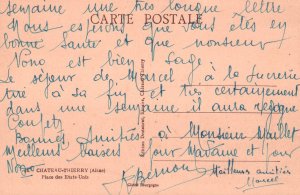 semaine une très longue lettre
CARTE POSTALE
Nous espérons que vous êtes en
bonne santé et que monsieur
Nono est bien sage
le séjour de Marcel à la sucrerie
tire à sa fin et très certainement
dans une semaine il aura
Bonnes Amitiés à Monsieur Maillet
Meilleurs baisers pour Madame et pour
Nono
CHATEAU-THIERRY (Aisne)
Place des Etats-Unis
Meilleures amitiés
Marcel